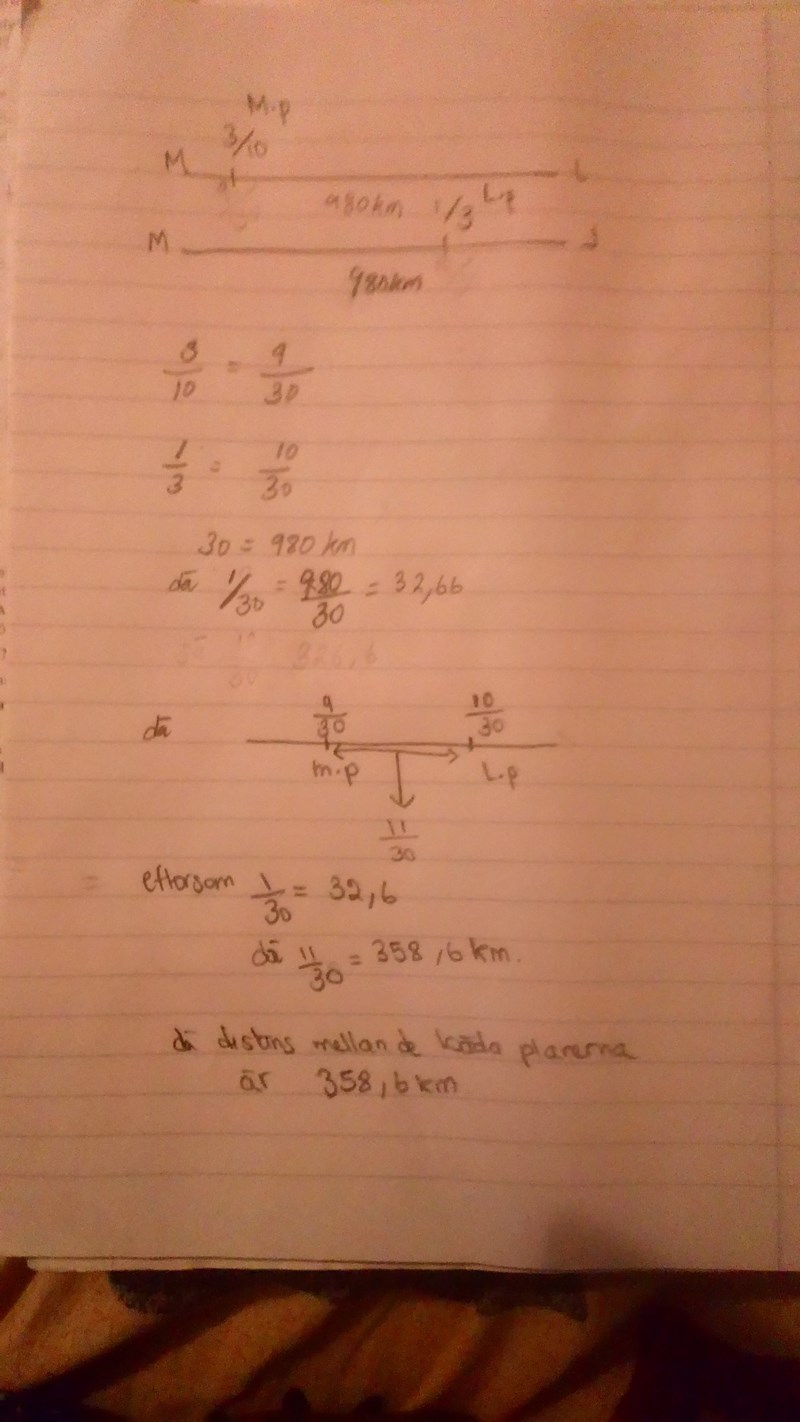 M.p
3/10
M L
980km 1/3 L.p
M
980km
3/10 = 9/30
1/3 = 10/30
30 = 980 km
då 1/30 = 980/30 = 32,66
326,6
då 9/30 10/30
m.p L.p
11/30
= eftersom 1/30 = 32,6
då 11/30 = 358,6 km.
då distans mellan de båda planerna
är 358,6 km